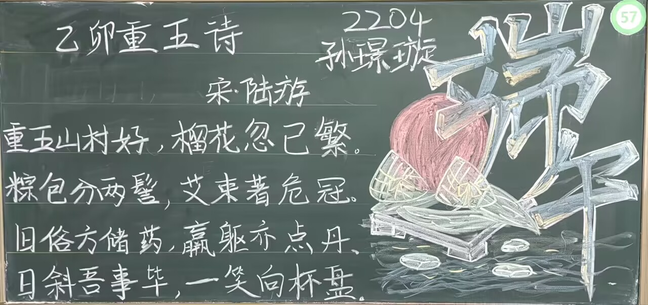 乙卯重五诗
2204
孙璟璇
宋·陆游
重五山村好，榴花忽已繁。
粽包分两髻，艾束著危冠。
旧俗方储药，羸躯亦点丹。
日斜吾事毕，一笑向杯盘。
端午
57